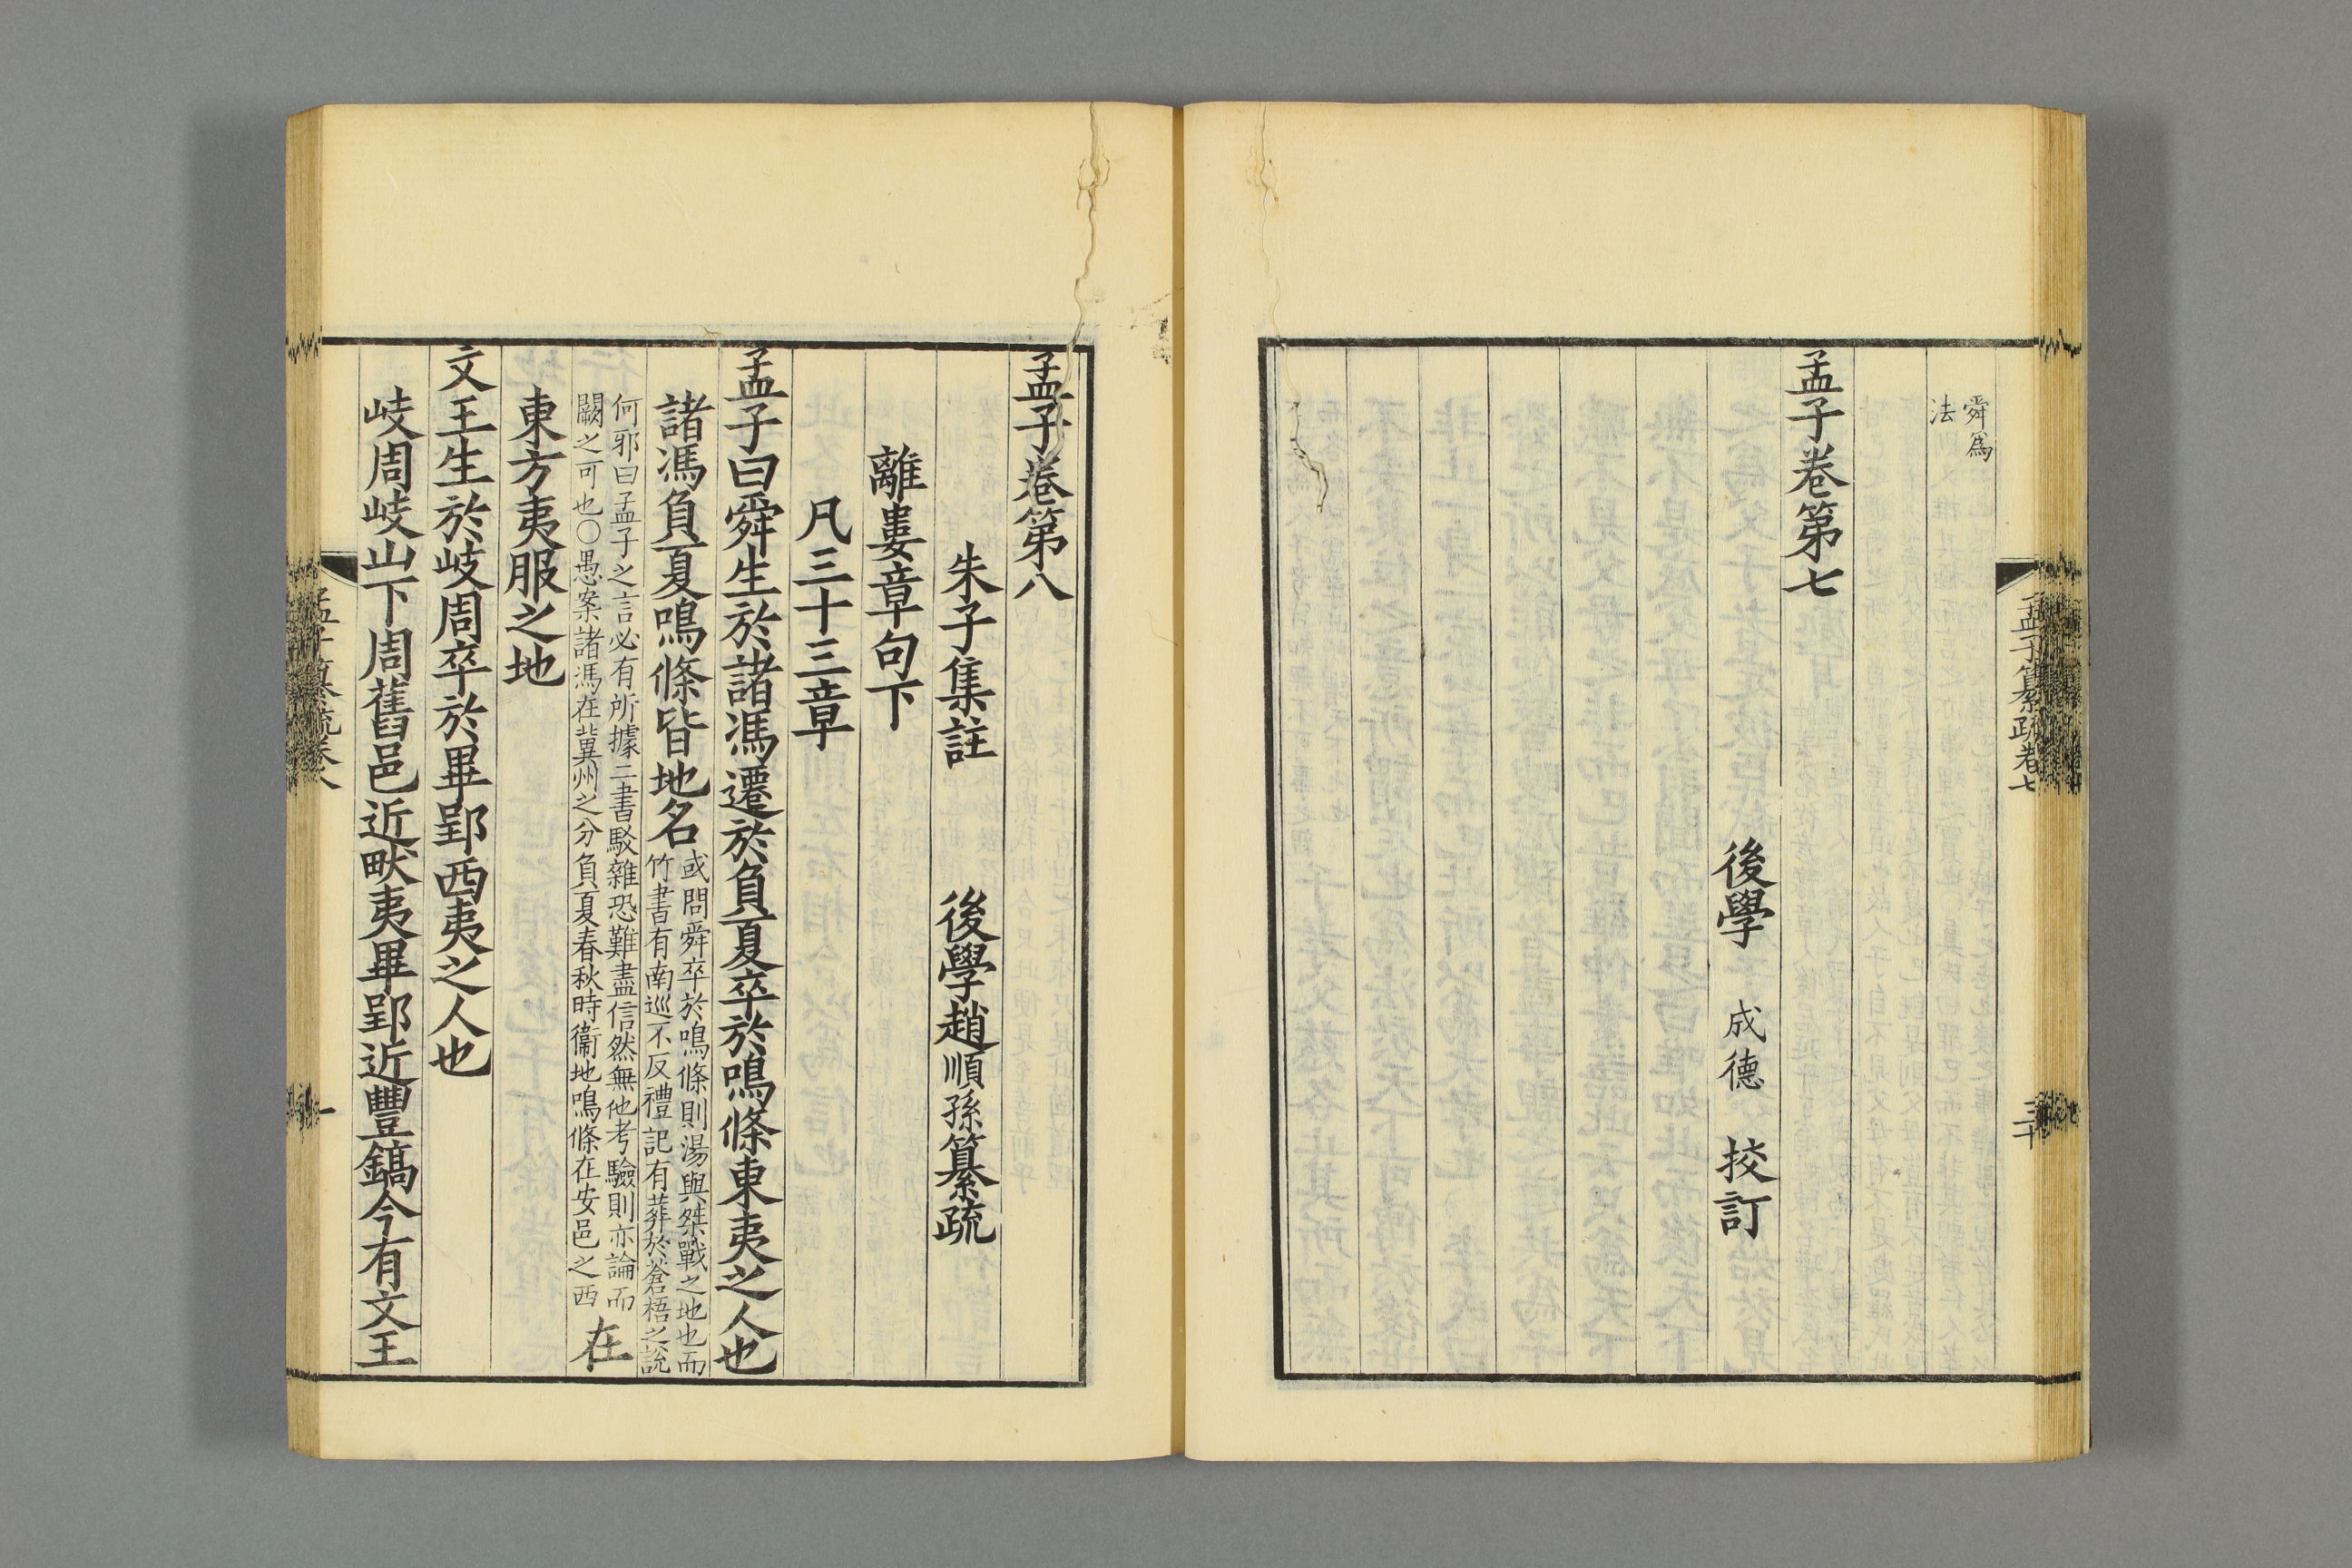 舜爲
法
孟子卷第七
後學 成德 挍訂
孟子纂疏卷七
三十
孟子卷第八
朱子集註 後學趙順孫纂疏
離婁章句下
凡三十三章
孟子曰舜生於諸馮遷於負夏卒於鳴條東夷之人也
諸馮負夏鳴條皆地名
或問舜卒於鳴條則湯與桀戰之地也而
竹書有南巡不反禮記有葬於蒼梧之說
何邪曰孟子之言必有所據二書駁雜恐難盡信然無他考驗則亦論而
闕之可也○愚案諸馮在冀州之分負夏春秋時衞地鳴條在安邑之西
在
東方夷服之地
文王生於岐周卒於畢郢西夷之人也
岐周岐山下周舊邑近畎夷畢郢近豐鎬今有文王
孟子纂疏卷八
一